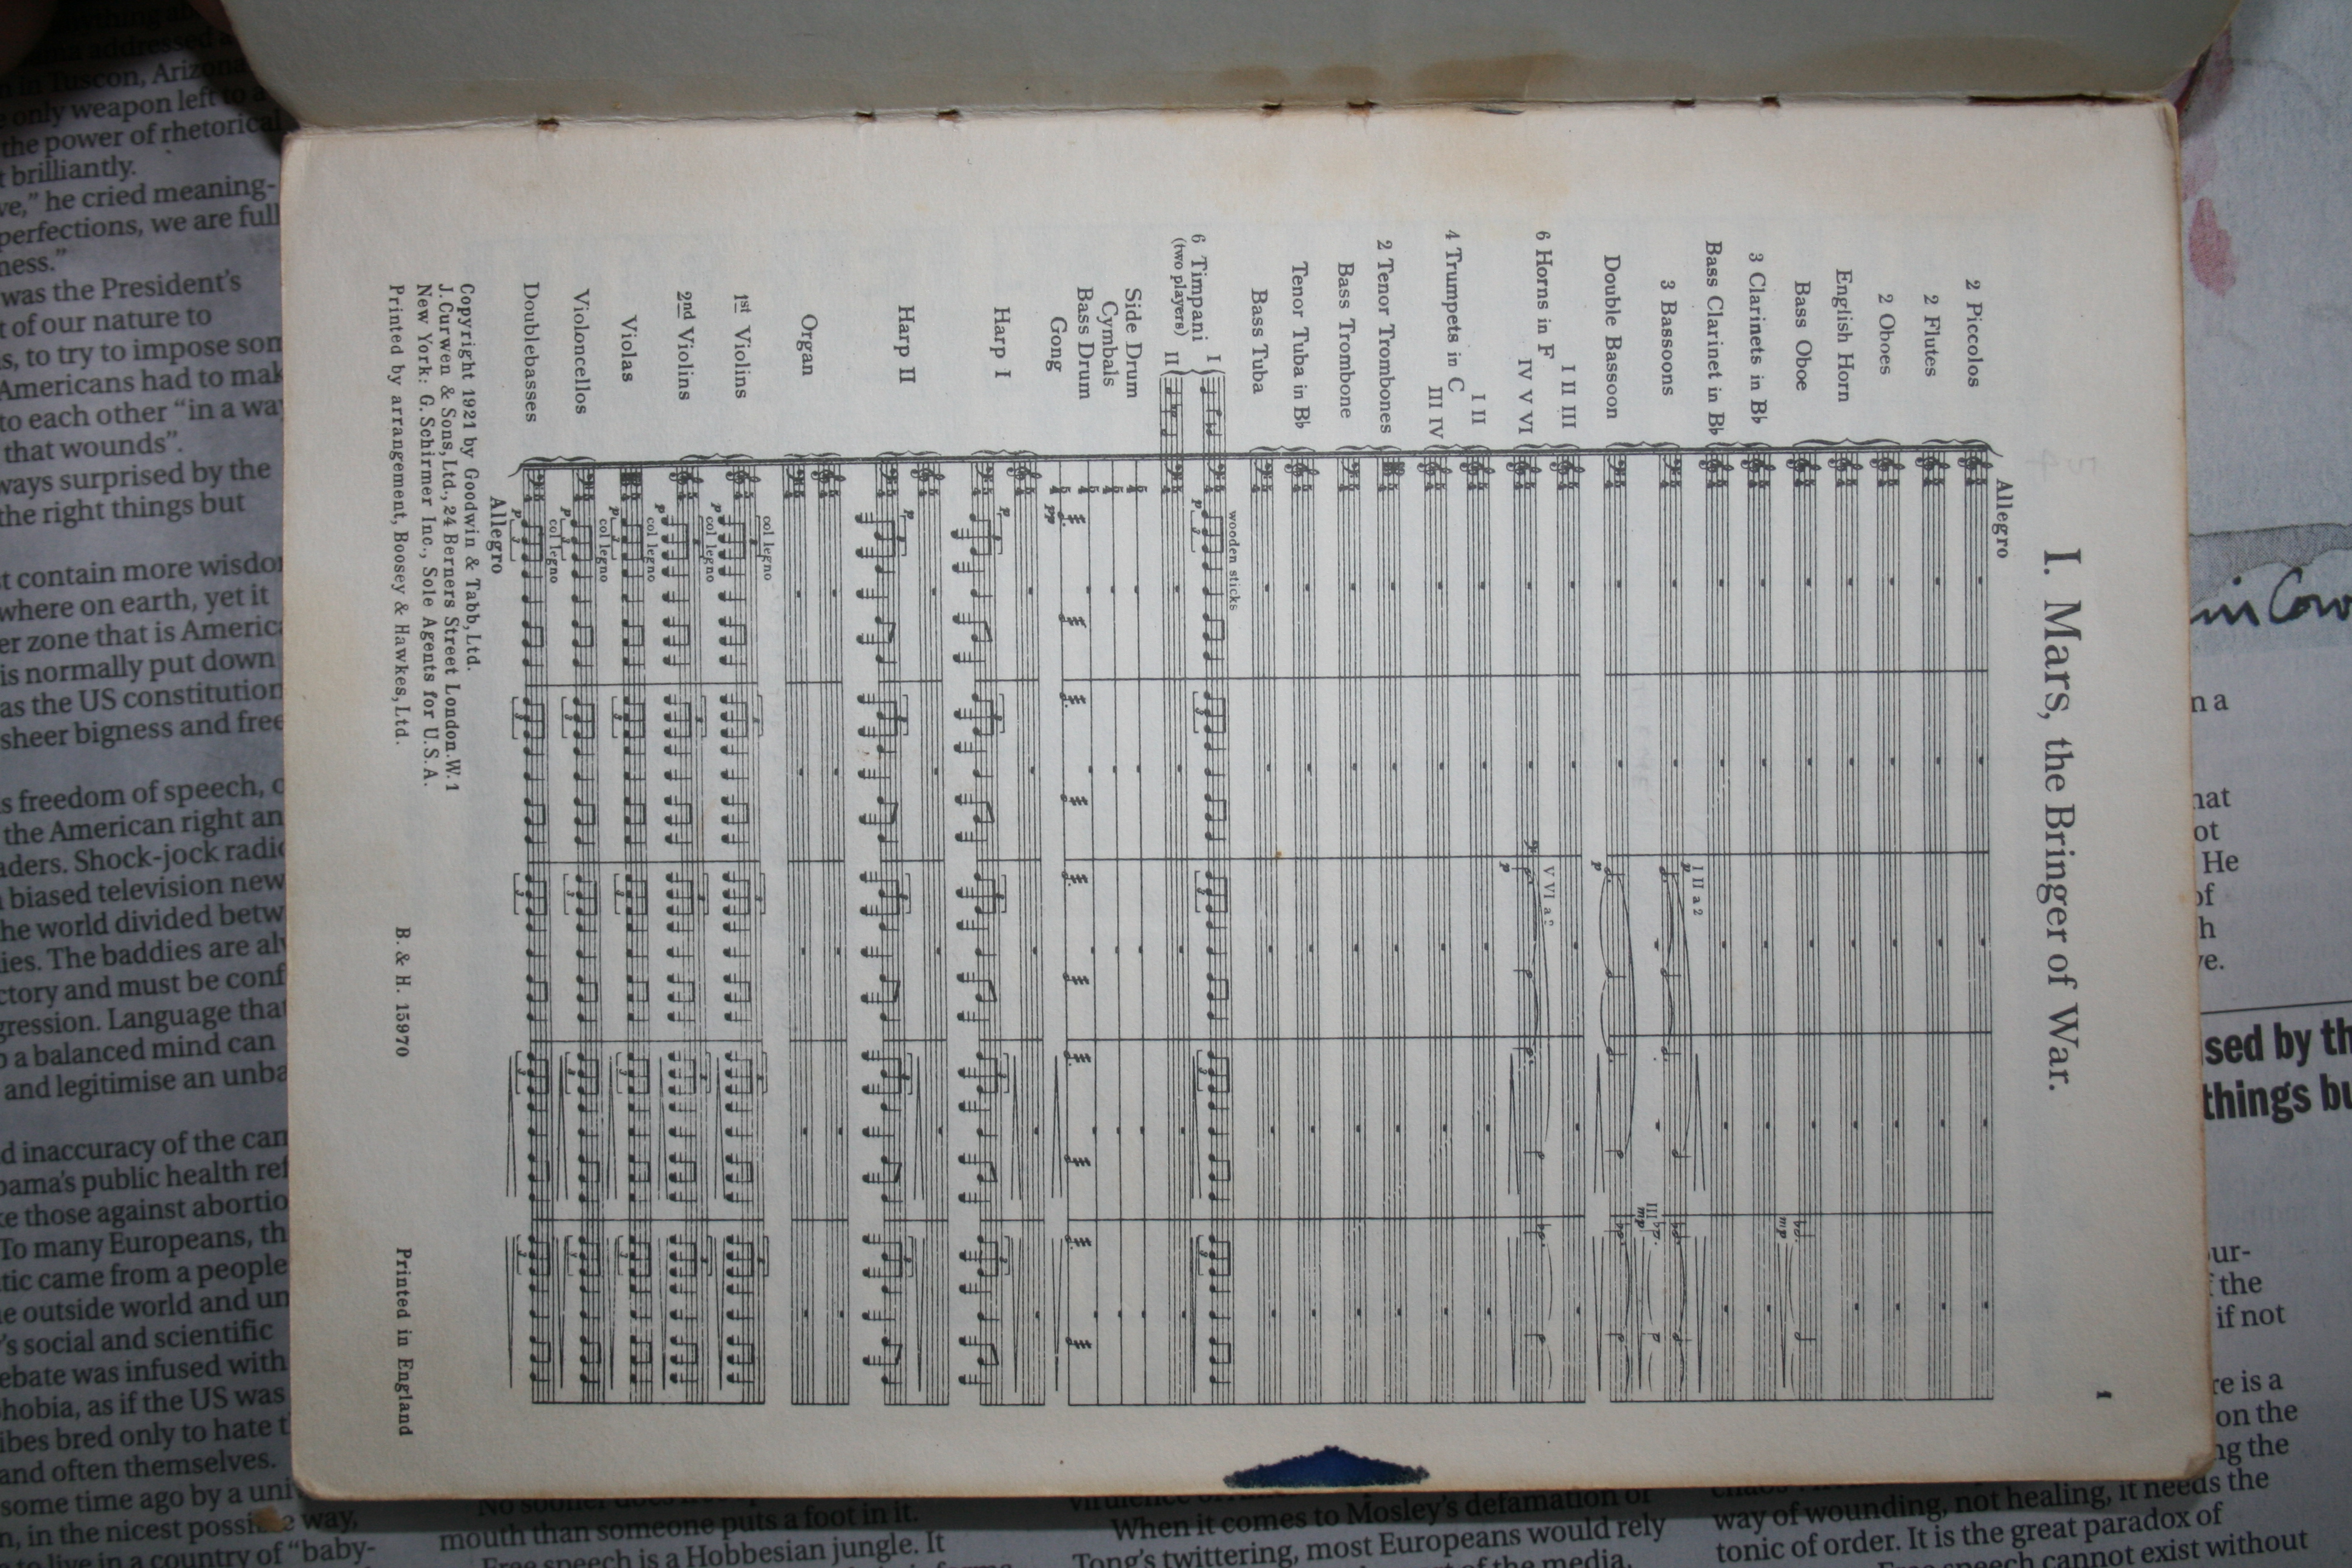 1
I. Mars, the Bringer of War.
Allegro
2 Piccolos
2 Flutes
2 Oboes
English Horn
Bass Oboe
mp
3 Clarinets in B♭
Bass Clarinet in B♭
I II a 2
p
3 Bassoons
III
mp
Double Bassoon
p
I II III
6 Horns in F
V VI a 2
IV V VI
p
I II
4 Trumpets in C
III IV
2 Tenor Trombones
Bass Trombone
Tenor Tuba in B♭
Bass Tuba
wooden sticks
6 Timpani I
p 3 3 3 3 3
(two players) II
Side Drum
Cymbals
Bass Drum
Gong
pp
Harp I
p 3 3 3 3 3
Harp II
p 3 3 3 3 3
Organ
col legno
1st Violins
p 3 3 3 3 3
col legno
2nd Violins
p 3 3 3 3 3
col legno
Violas
p 3 3 3 3 3
col legno
Violoncellos
p 3 3 3 3 3
col legno
Doublebasses
p 3 3 3 3 3
Allegro
Copyright 1921 by Goodwin & Tabb, Ltd.
J. Curwen & Sons, Ltd., 24 Berners Street London. W. 1
New York: G. Schirmer Inc., Sole Agents for U.S.A.
Printed by arrangement, Boosey & Hawkes, Ltd.
B. & H. 15970
Printed in England
addressed
in Tuscon, Arizona
only weapon left to a
the power of rhetorical
brilliantly.
ve,” he cried meaning-
perfections, we are full
ness.”
was the President’s
t of our nature to
s, to try to impose
Americans had to
to each other “in a way
that wounds”.
ways surprised by the
the right things but
st contain more
where on earth, yet it
er zone that is
is normally put down
as the US constitution
sheer bigness and
s freedom of speech,
the American right
aders. Shock-jock
biased television
he world divided
ies. The baddies are
ctory and must be
gression. Language that
a balanced mind can
and legitimise an
d inaccuracy of the
bama’s public health
ke those against
To many Europeans,
tic came from a people
e outside world and
’s social and scientific
ebate was infused with
hobia, as if the US was
ibes bred only to hate
and often themselves.
some time ago by a
n, in the nicest way,
to live in a country of “baby-
No sooner does
mouth than someone puts a foot in it.
Free speech is a Hobbesian jungle. It
When it comes to Mosley’s defamation or
Tong’s twittering, most Europeans would rely
of the media.
way of wounding, not healing, it needs the
tonic of order. It is the great paradox of
speech cannot exist without
n a
hat
ot
He
of
h
ve.
sed by
things
ur-
f the
if not
re is a
on the
ng the